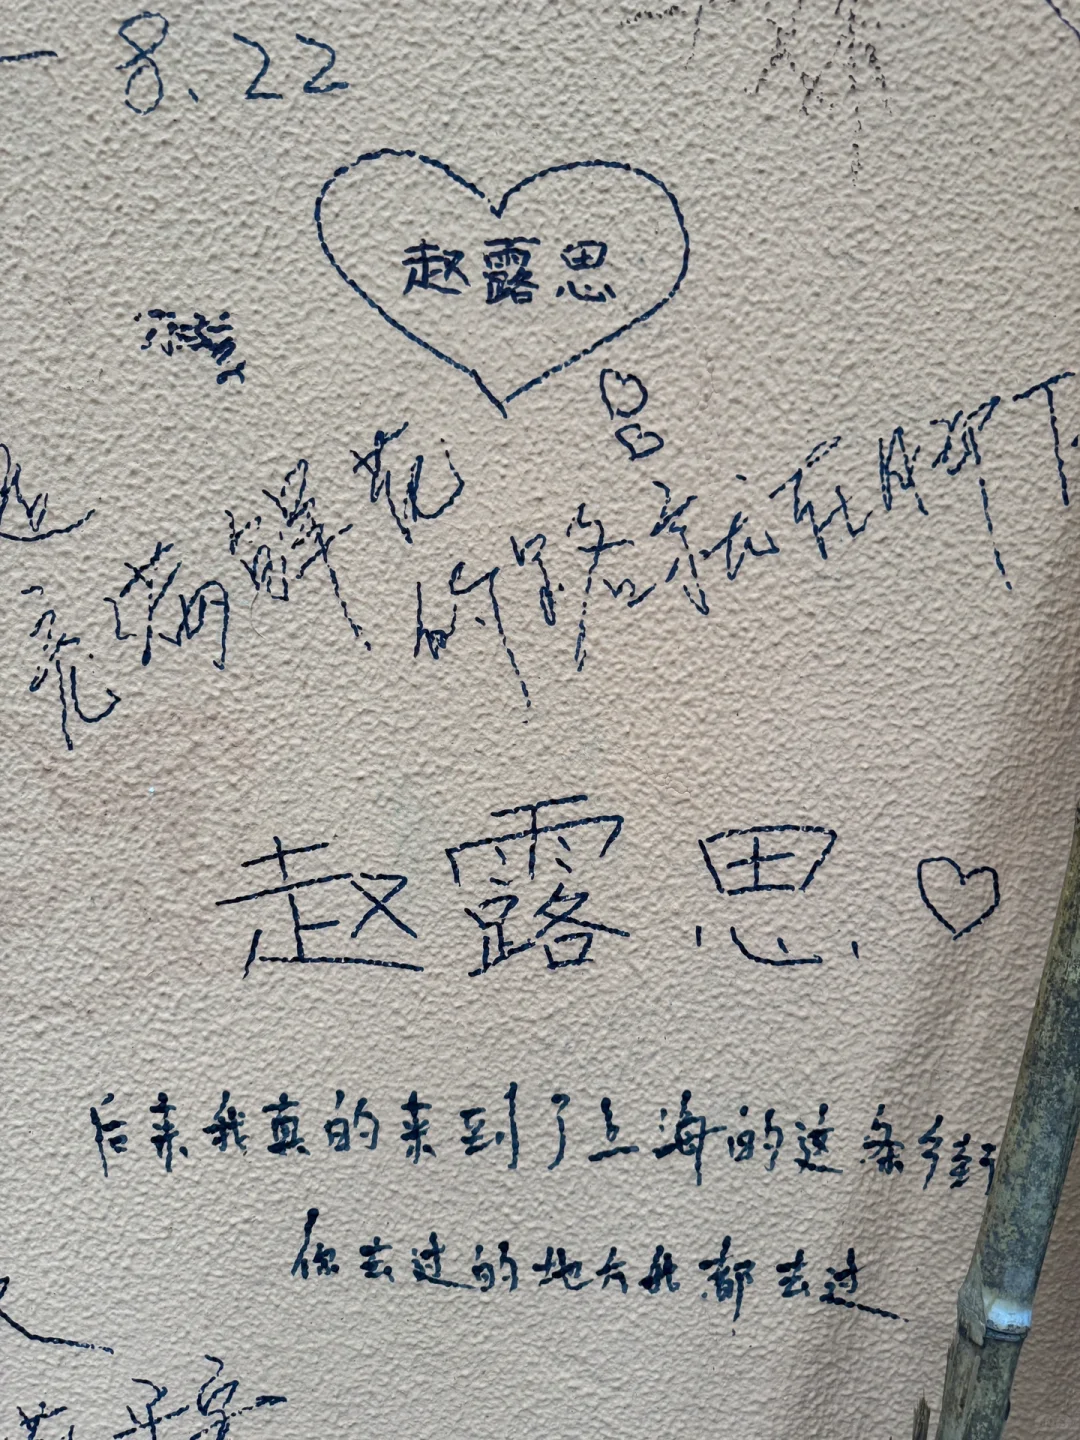 8.22
赵露思
的路
就在脚下
赵露思
后来我真的来到了上海的这条街
你去过的地方我都去过
平安